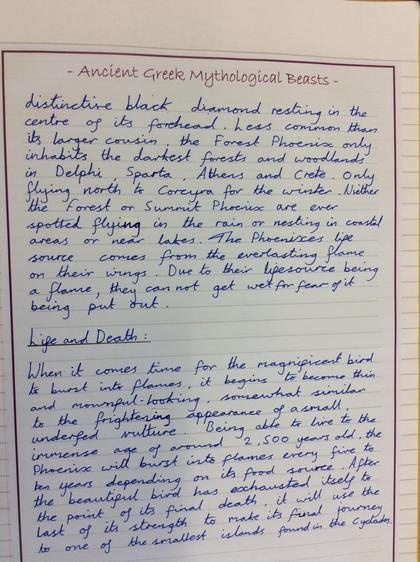 - Ancient Greek Mythological Beasts -
distinctive black diamond resting in the
centre of its forhead. Less common than
its larger cousin, the Forest Phoenix only
inhabits the darkest forests and woodlands
in Delphi, Sparta, Athens and Crete. Only
flying north to Corcyra for the winter. Niether
the Forest or Summit Phoenix are ever
spotted flying in the rain or nesting in coastal
areas or near lakes. The Phoenixes life
source comes from the everlasting flame
on their wings. Due to their lifesource being
a flame, they can not get wet for fear of it
being put out.
Life and Death:
When it comes time for the magnificent bird
to burst into flames, it begins to become thin
and mournful-looking, somewhat similar
to the frightening appearance of a small,
underfed vulture. Being able to live to the
immense age of around 2,500 years old, the
Phoenix will burst into flames every five to
ten years depending on its food source. After
the beautiful bird has exhausted itself to
the point of its final death, it will use the
last of its strength to make its final journey
to one of the smallest islands found in the Cyclades.